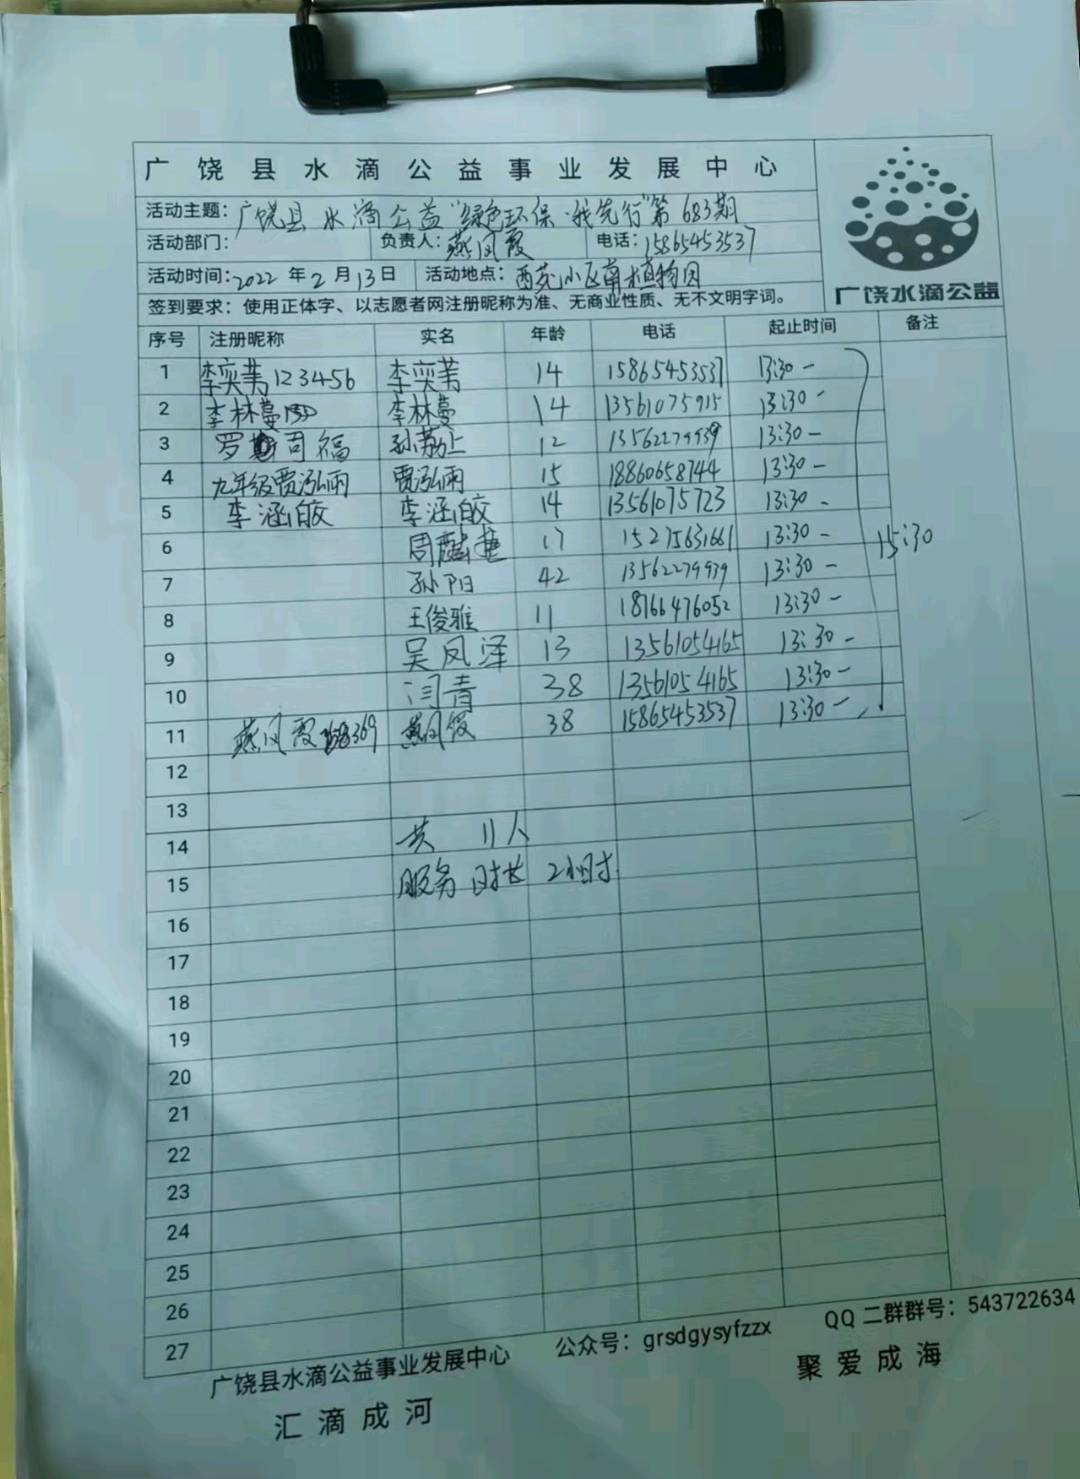 广饶县水滴公益事业发展中心
活动主题：广饶县水滴公益“绿色环保·我先行”第683期
活动部门： 负责人：燕凤霞 电话：15865453537
活动时间：2022年2月13日 活动地点：西苑小区南植物园
签到要求：使用正体字、以志愿者网注册昵称为准、无商业性质、无不文明字词。
广饶水滴公益
序号 注册昵称 实名 年龄 电话 起止时间 备注
1 李奕苇123456 李奕苇 14 15865453537 13:30-
2 李林蔓 李林蔓 14 13561075915 13:30-
3 罗 司福 孙 上 12 13562279939 13:30-
4 九年级贾泓雨 贾泓雨 15 18860658744 13:30-
5 李涵皎 李涵皎 14 13561075723 13:30-
6 周麟 17 15275631661 13:30- 15:30
7 孙阳 42 13562279939 13:30-
8 王俊雅 11 18166476052 13:30-
9 吴凤泽 13 13561054165 13:30-
10 闫青 38 13561054165 13:30-
11 燕凤霞 369 燕凤霞 38 15865453537 13:30-
12
13
14 共 11人
15 服务时长 2小时.
16
17
18
19
20
21
22
23
24
25
26
27
广饶县水滴公益事业发展中心 公众号：grsdgysyfzzx QQ二群群号：543722634
汇滴成河 聚爱成海